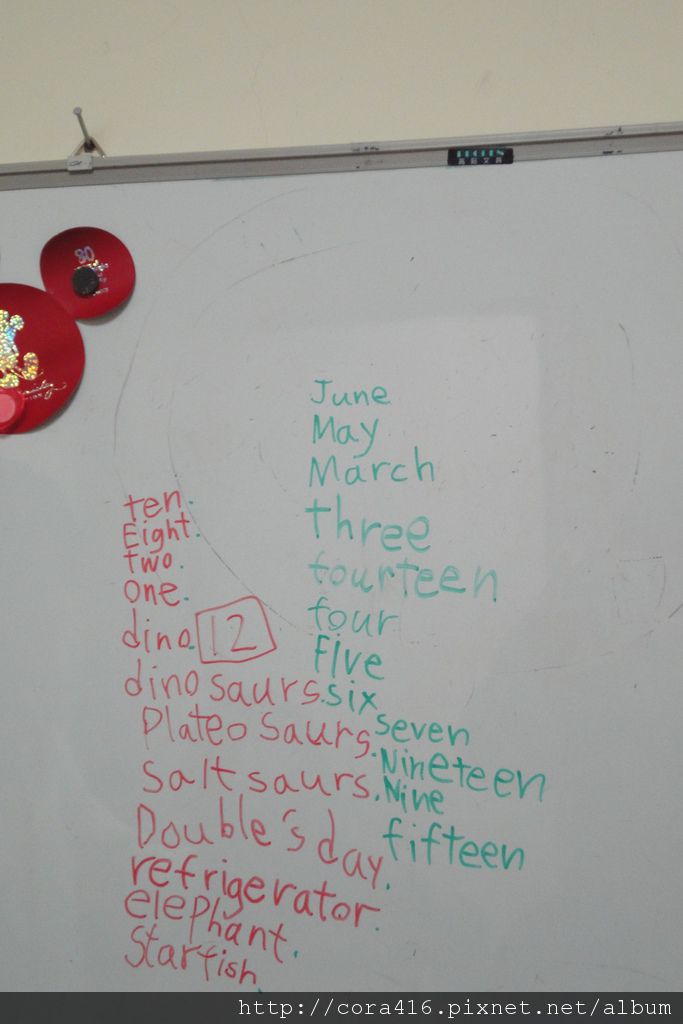 80
June
May
March
three
fourteen
four
Five
six
seven
Nineteen
Nine
fifteen
ten.
Eight.
two.
one.
dino. 12
dinosaurs.
Plateosaurs.
Saltsaurs.
Double's day.
refrigerator.
elephant.
Starfish.
http://cora416.pixnet.net/album